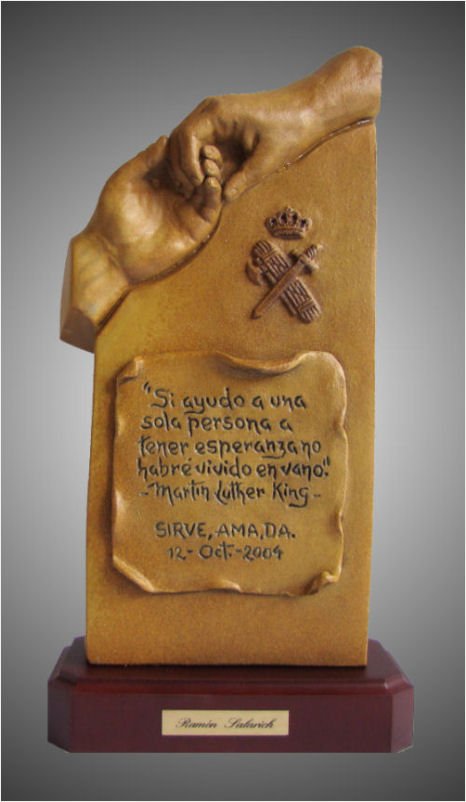 "Si ayudo a una
sola persona a
tener esperanza no
habré vivido en vano."
-Martin Luther King-
SIRVE, AMA, DA.
12-Oct.-2004
Ramón